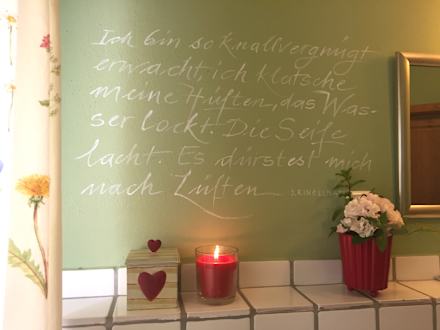 Ich bin so knallvergnügt
erwacht, ich klatsche
meine Hüften, das Was-
ser lockt. Die Seife
lacht. Es dürstet mich
nach Lüften